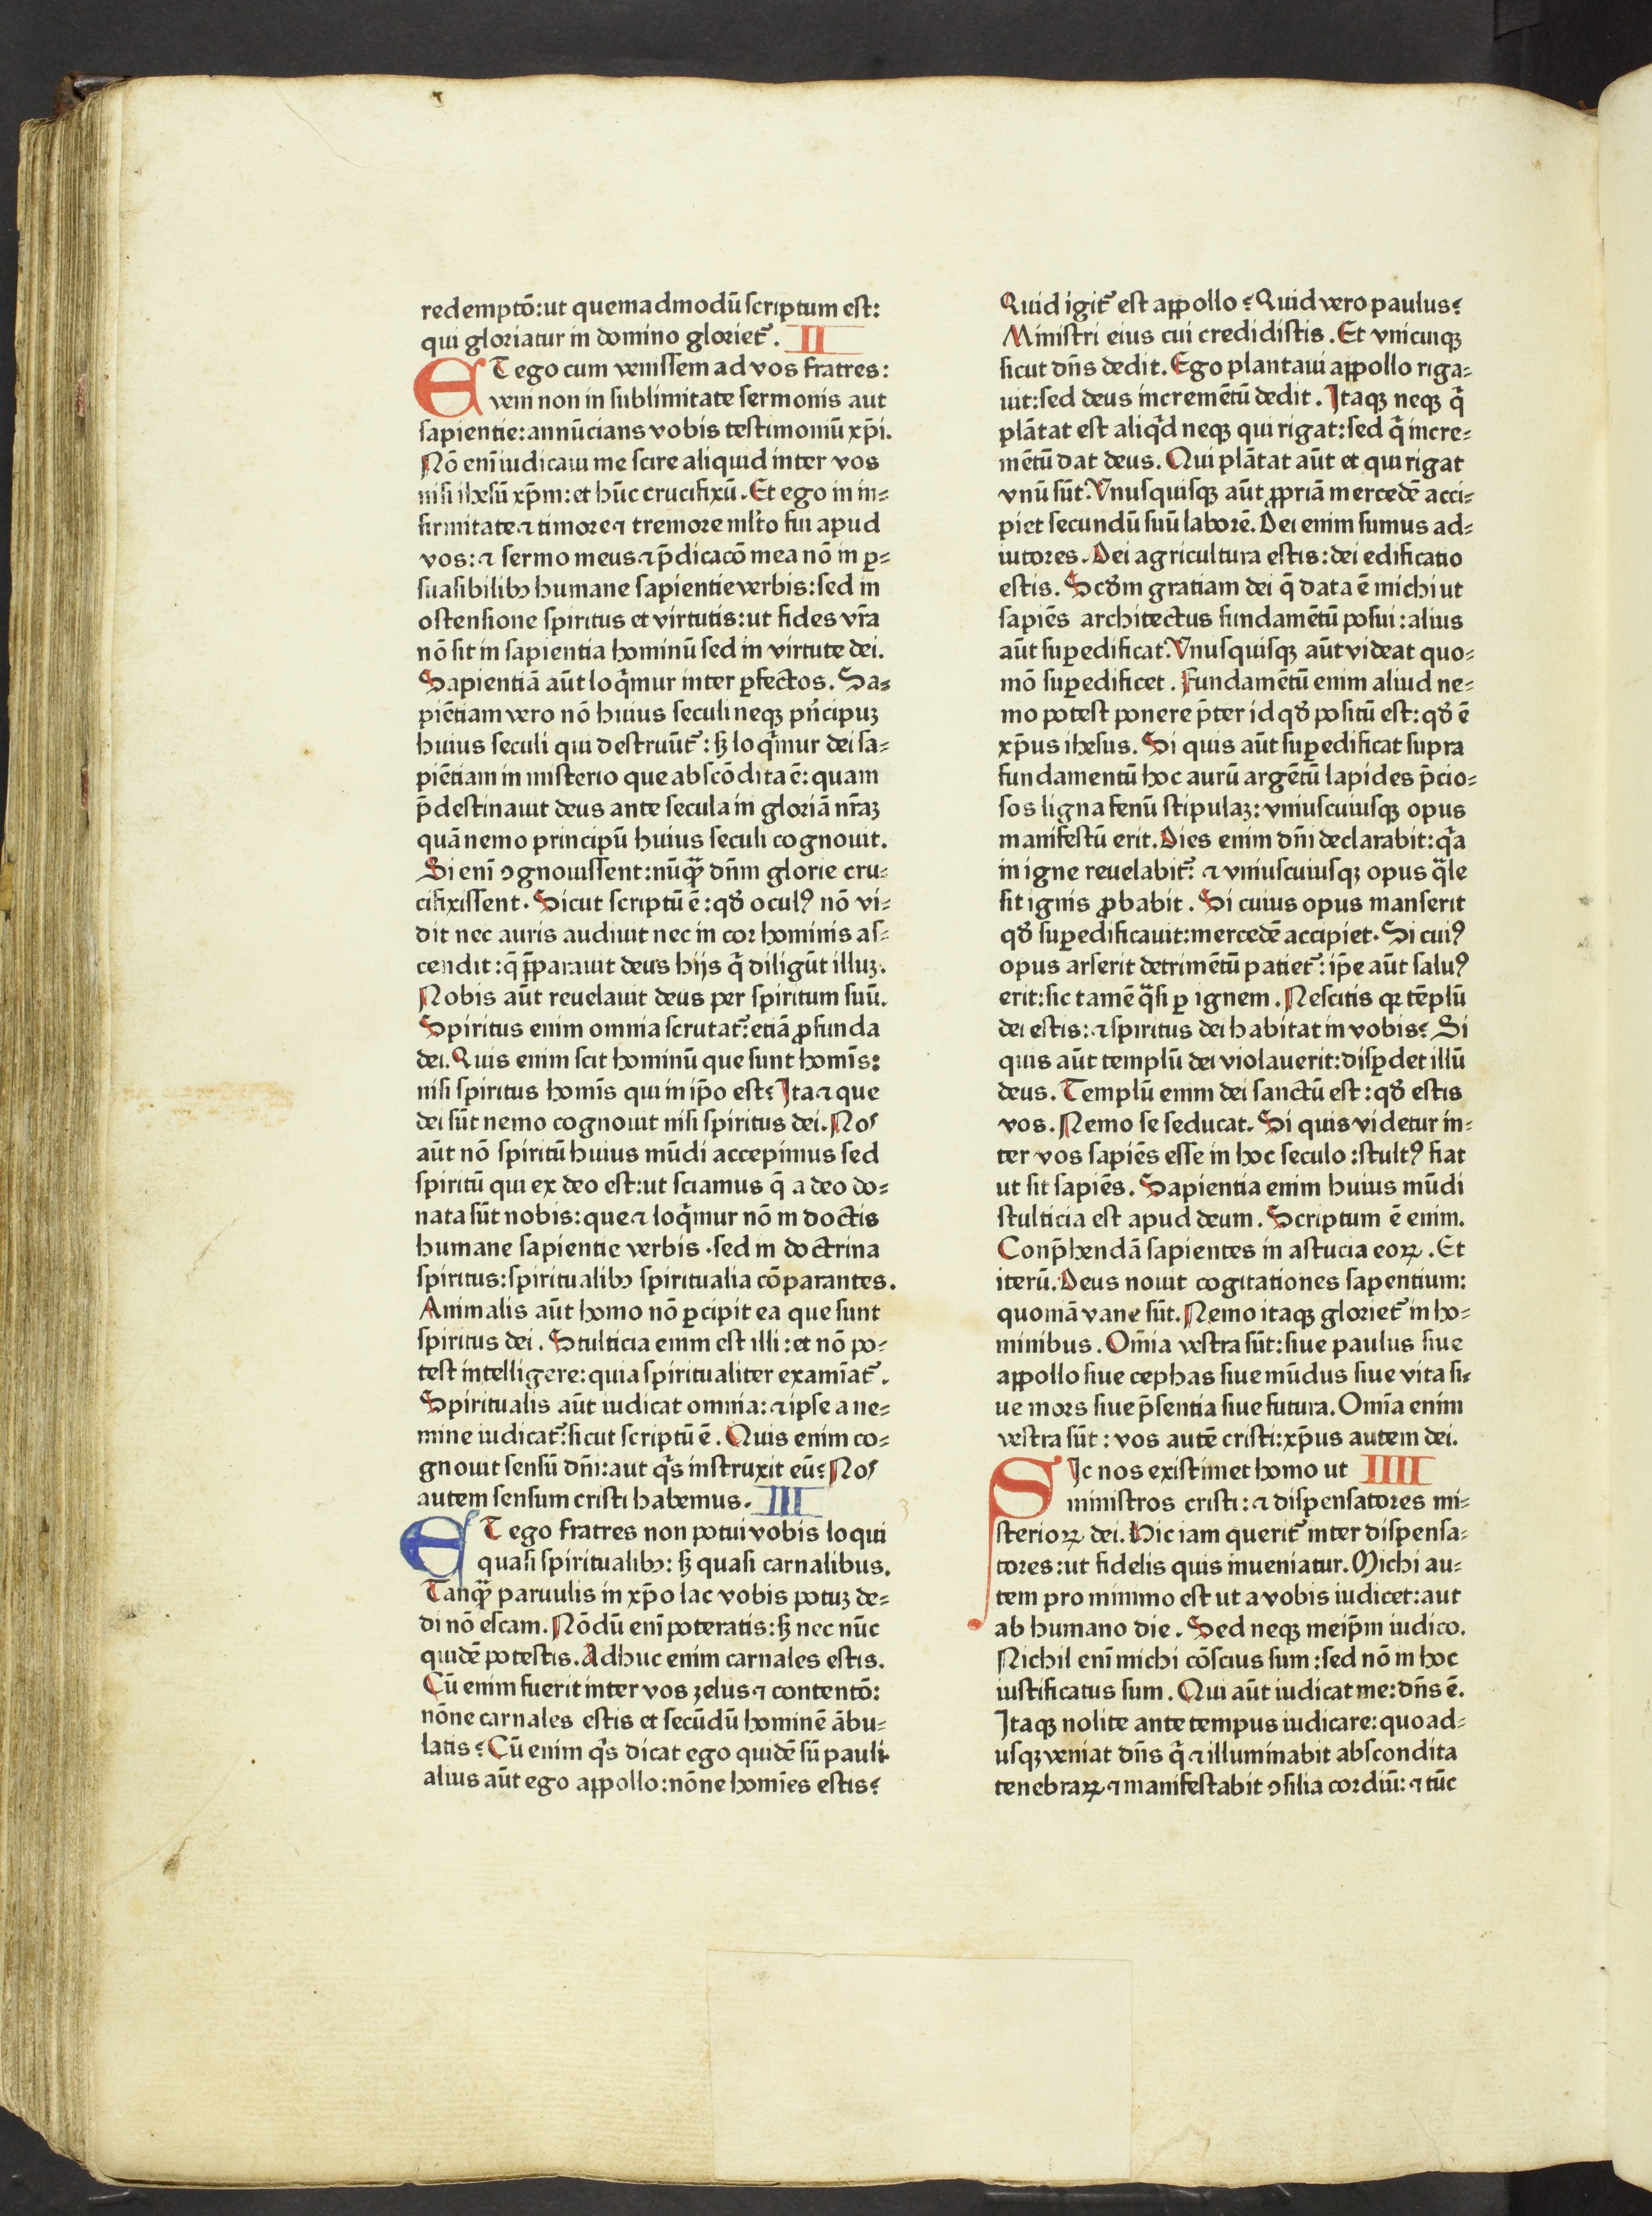 redemptō: ut quemadmodū scriptum est:
qui gloriatur in domino glorietᷣ. II
ET ego cum venissem ad vos fratres:
veni non in sublimitate sermonis aut
sapientie: annūcians vobis testimoniū xp̄i.
Nō eni̅ iudicaui me scire aliquid inter vos
nisi ihesū xp̄m: et hūc crucifixū. Et ego in in⸗
firmitate ⁊ timore ⁊ tremore ml̄to fui apud
vos: ⁊ sermo meus ⁊ p̄dicacō mea nō in ꝑ⸗
suasibilibꝫ humane sapientie verbis: sed in
ostensione spiritus et virtutis: ut fides vr̄a
nō sit in sapientia hominū sed in virtute dei.
Sapientiā aūt loq̄mur inter ꝑfectos. Sa⸗
piētiam vero nō huius seculi neqꝫ pⁱncipuꝫ
huius seculi qui destruūtᷣ: sꝫ loq̄mur dei sa⸗
piētiam in misterio que abscōdita ē: quam
p̄destinauit deus ante secula in gloriā nr̄aꝫ
quā nemo principū huius seculi cognouit.
Si eni̅ ꝯgnouissent: nūqᷓ dn̄m glorie cru⸗
cifixissent. Sicut scriptū ē: qð oculꝰ nō vi⸗
dit nec auris audiuit nec in cor hominis as⸗
cendit: q̄ p̄parauit deus hijs q̄ diligūt illuꝫ.
Nobis aūt reuelauit deus per spiritum suū.
Spiritus enim omnia scrutatᷣ: etiā ꝓfunda
dei. Quis enim scit hominū que sunt homīs:
nisi spiritus homīs qui in ip̄o est? Ita ⁊ que
dei sūt nemo cognouit nisi spiritus dei. Nos
aūt nō spiritū huius mūdi accepimus sed
spiritū qui ex deo est: ut sciamus q̄ a deo do⸗
nata sūt nobis: que ⁊ loq̄mur nō in doctis
humane sapientie verbis. sed in doctrina
spiritus: spiritualibꝫ spiritualia cōparantes.
Animalis aūt homo nō ꝑcipit ea que sunt
spiritus dei. Stulticia enim est illi: et nō po⸗
test intelligere: quia spiritualiter examīatᷣ.
Spiritualis aūt iudicat omnia: ⁊ ipse a ne⸗
mine iudicatᷣ: sicut scriptū ē. Quis enim co⸗
gnouit sensū dn̄i: aut qⁱs instruxit eū? Nos
autem sensum cristi habemus. III
ET ego fratres non potui vobis loqui
quasi spiritualibꝫ: sꝫ quasi carnalibus.
Tanqᷓ paruulis in xp̄o lac vobis potuꝫ de⸗
di nō escam. Nōdū eni̅ poteratis: sꝫ nec nūc
quidē potestis. Adhuc enim carnales estis.
Cū enim fuerit inter vos zelus ⁊ contentō:
nōne carnales estis et secūdū hominē ābu⸗
latis? Cū enim qⁱs dicat ego quidē sū pauli.
alius aūt ego appollo: nōne homīes estis?
Quid igitᷣ est appollo? Quid vero paulus?
Ministri eius cui credidistis. Et vnicuiqꝫ
sicut dn̄s dedit. Ego plantaui appollo riga⸗
uit: sed deus incremētū dedit. Itaqꝫ neqꝫ q̄
plātat est aliqⁱd neqꝫ qui rigat: sed q̄ incre⸗
mētū dat deus. Qui plātat aūt et qui rigat
vnū sūt. Vnusquisqꝫ aūt ꝓpriā mercedē acci⸗
piet secundū suū laborē. Dei enim sumus ad⸗
iutores. Dei agricultura estis: dei edificatio
estis. Scðm gratiam dei q̄ data ē michi ut
sapiēs architectus fundamētū posui: alius
aūt suꝑedificat. Vnusquisqꝫ aūt videat quo⸗
mō suꝑedificet. Fundamētū enim aliud ne⸗
mo potest ponere p̄ter id qð positū est: qð ē
xp̄us ihesus. Si quis aūt suꝑedificat supra
fundamentū hoc aurū argētū lapides p̄cio⸗
sos ligna fenū stipulaꝫ: vniuscuiusqꝫ opus
manifestū erit. Dies enim dn̄i declarabit: qᷓa
in igne reuelabitᷣ: ⁊ vniuscuiusqꝫ opus qᷓle
sit ignis ꝓbabit. Si cuius opus manserit
qð suꝑedificauit: mercedē accipiet. Si cuiꝰ
opus arserit detrimētū patietᷣ: ip̄e aūt saluꝰ
erit: sic tamē qᷓsi ꝑ ignem. Nescitis qꝛ tēplū
dei estis: ⁊ spiritus dei habitat in vobis? Si
quis aūt templū dei violauerit: disꝑdet illū
deus. Templū enim dei sanctū est: qð estis
vos. Nemo se seducat. Si quis videtur in⸗
ter vos sapiēs esse in hoc seculo: stultꝰ fiat
ut sit sapiēs. Sapientia enim huius mūdi
stulticia est apud deum. Scriptum ē enim.
Conp̄hendā sapientes in astucia eoꝝ. Et
iterū. Deus nouit cogitationes sapentium:
quoniā vane sūt. Nemo itaqꝫ glorietᷣ in ho⸗
minibus. Omīa vestra sūt: siue paulus siue
appollo siue cephas siue mūdus siue vita si⸗
ue mors siue p̄sentia siue futura. Omīa enim
vestra sūt: vos autē cristi: xp̄us autem dei.
SIc nos existimet homo ut IIII
ministros cristi: ⁊ dispensatores mi⸗
sterioꝝ dei. Hic iam queritᷣ inter dispensa⸗
tores: ut fidelis quis inueniatur. Michi au⸗
tem pro minimo est ut a vobis iudicer: aut
ab humano die. Sed neqꝫ meip̄m iudico.
Nichil eni̅ michi cōscius sum: sed nō in hoc
iustificatus sum. Qui aūt iudicat me: dn̄s ē.
Itaqꝫ nolite ante tempus iudicare: quoad⸗
usqꝫ veniat dn̄s q̄ ⁊ illuminabit abscondita
tenebraꝝ ⁊ manifestabit ꝯsilia cordiū: ⁊ tūc